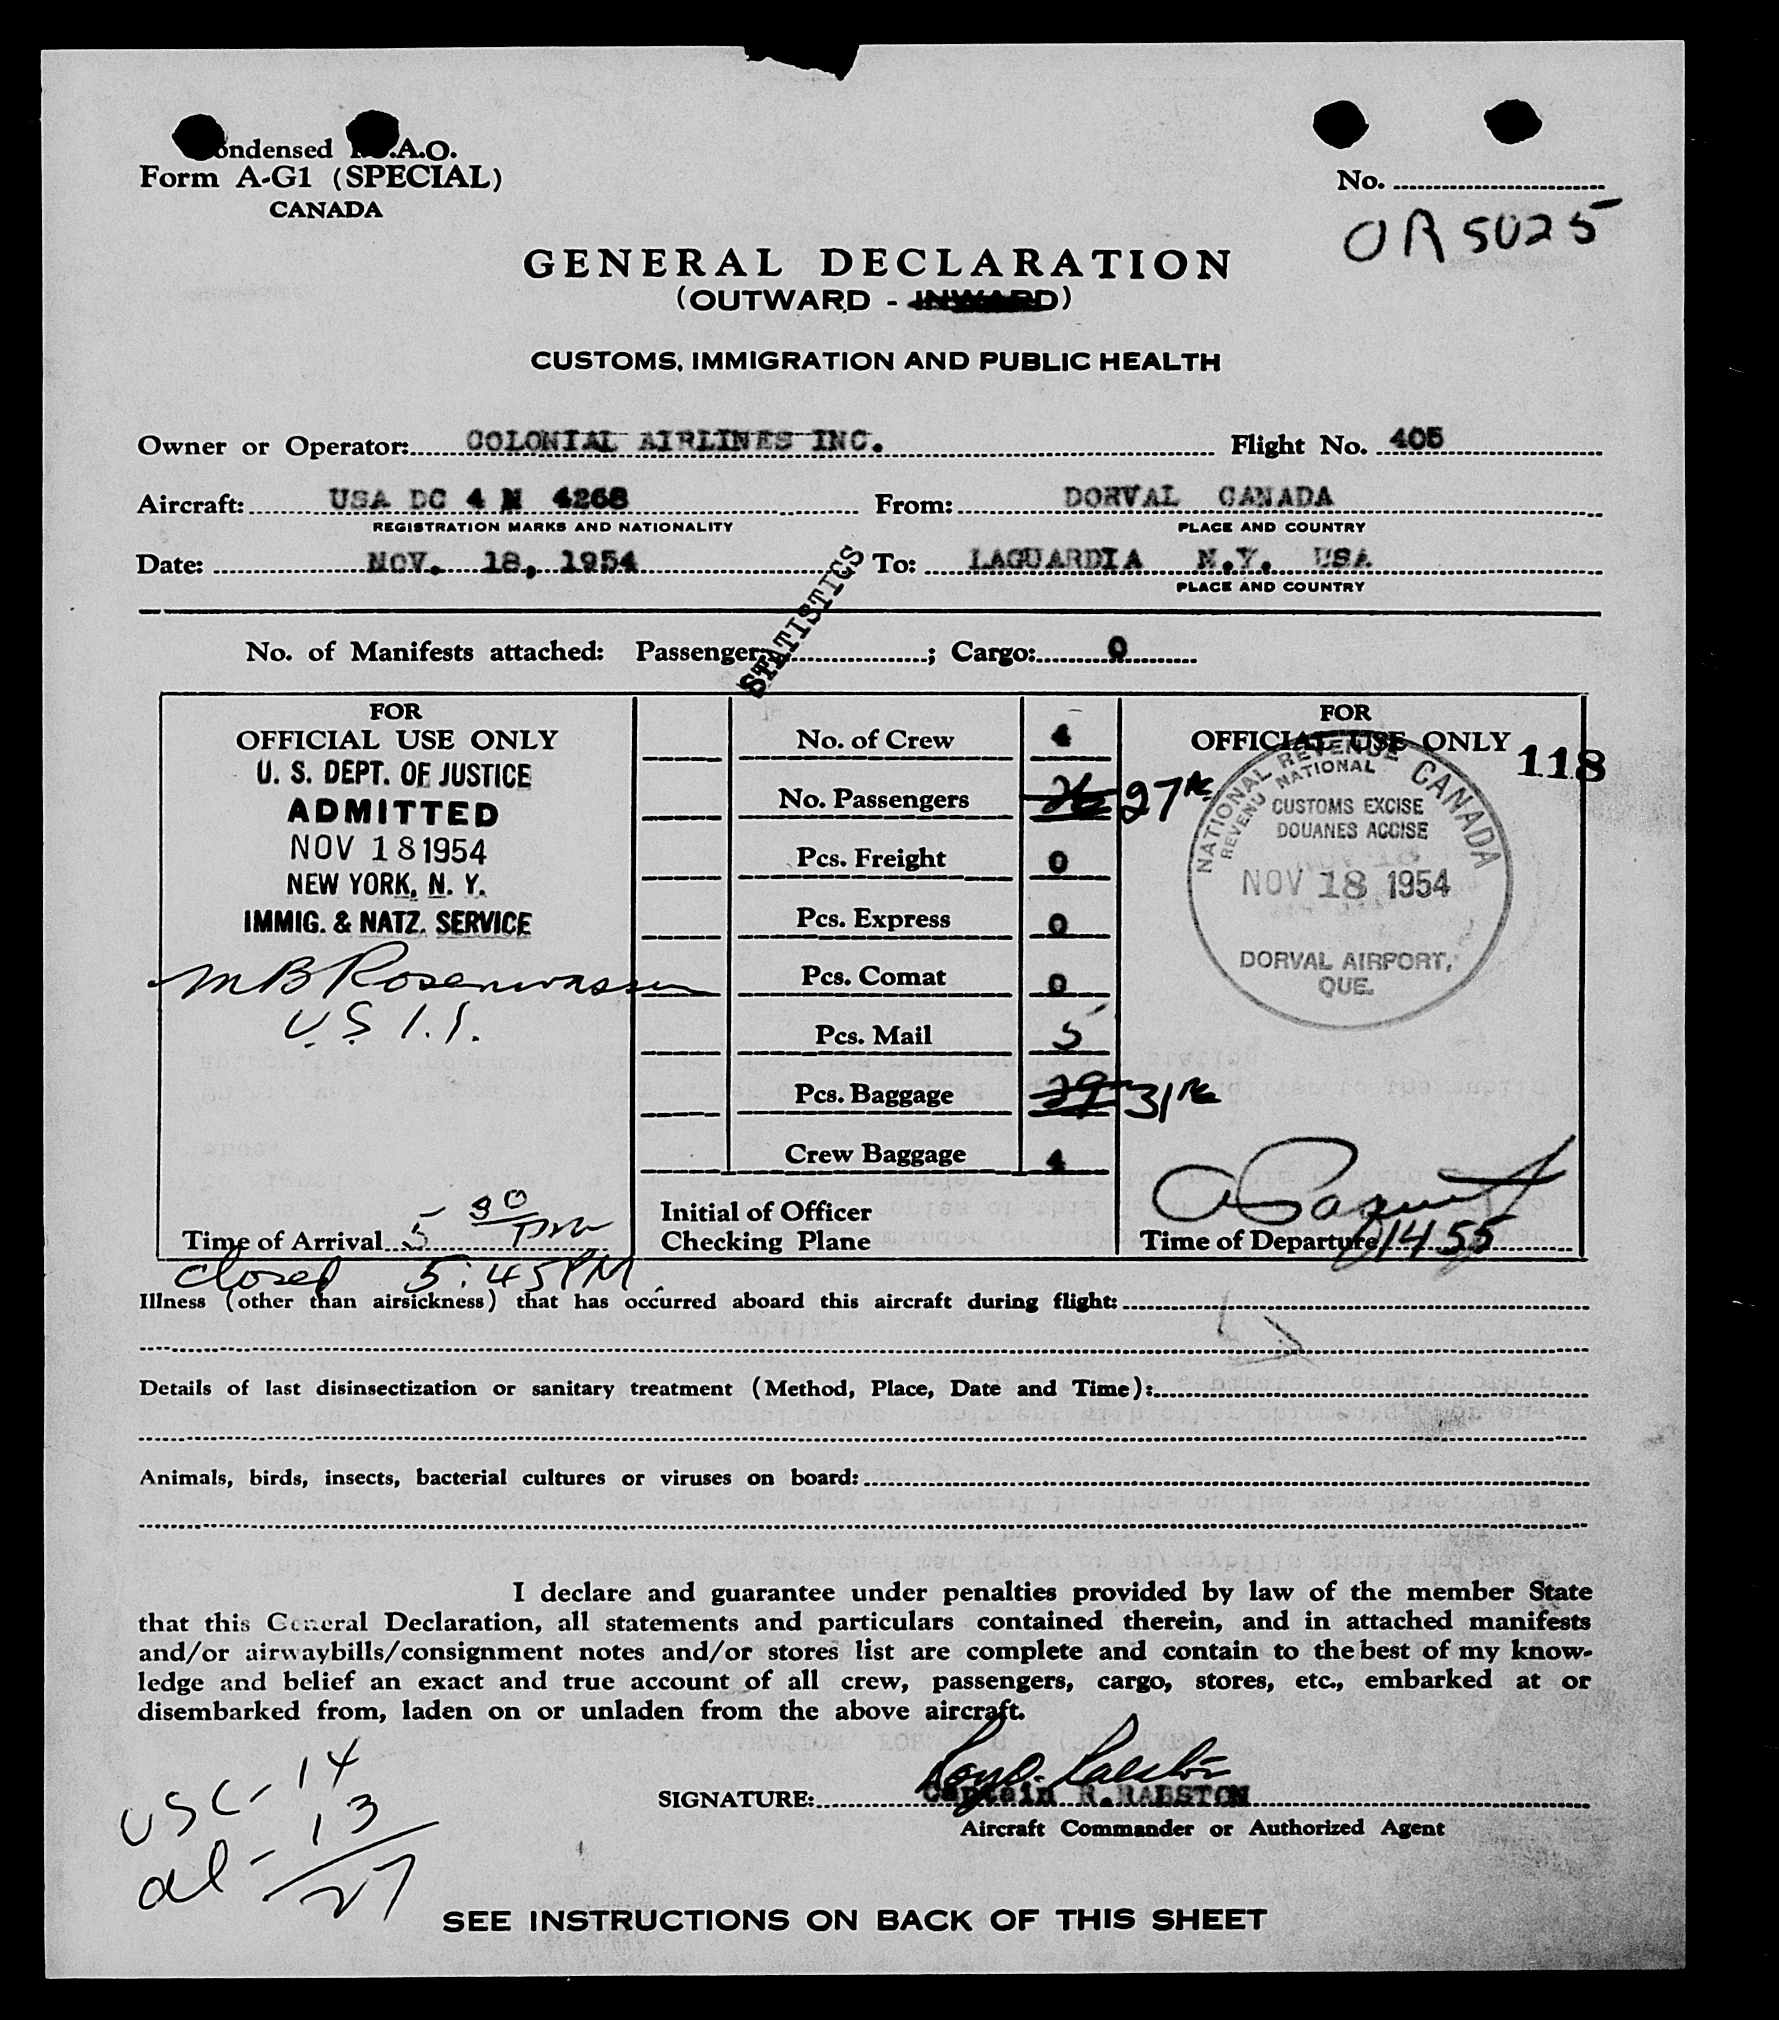 ondensed I.C.A.O.
Form A-G1 (SPECIAL)
CANADA
No.
OR 5025
GENERAL DECLARATION
(OUTWARD - INWARD)
CUSTOMS, IMMIGRATION AND PUBLIC HEALTH
Owner or Operator: COLONIAL AIRLINES INC. Flight No. 405
Aircraft: USA DC 4 N 4268 From: DORVAL CANADA
REGISTRATION MARKS AND NATIONALITY PLACE AND COUNTRY
Date: NOV. 18, 1954 To: LAGUARDIA N.Y. USA
PLACE AND COUNTRY
STATISTICS
No. of Manifests attached: Passenger: ; Cargo: 0
FOR
OFFICIAL USE ONLY
U. S. DEPT. OF JUSTICE
ADMITTED
NOV 18 1954
NEW YORK, N. Y.
IMMIG. & NATZ. SERVICE
M B Rosenwasser
U.S.I.I.
Time of Arrival 5 30 PM
closed 5:45 PM
No. of Crew 4
No. Passengers 26 27
Pcs. Freight 0
Pcs. Express 0
Pcs. Comat 0
Pcs. Mail 5
Pcs. Baggage 29 31
Crew Baggage 4
Initial of Officer
Checking Plane
FOR
OFFICIAL USE ONLY
118
NATIONAL REVENUE CANADA
REVENU NATIONAL
CUSTOMS EXCISE
DOUANES ACCISE
NOV 18 1954
DORVAL AIRPORT,
QUE.
Time of Departure 1455
Illness (other than airsickness) that has occurred aboard this aircraft during flight:
Details of last disinsectization or sanitary treatment (Method, Place, Date and Time):
Animals, birds, insects, bacterial cultures or viruses on board:
I declare and guarantee under penalties provided by law of the member State
that this General Declaration, all statements and particulars contained therein, and in attached manifests
and/or airwaybills/consignment notes and/or stores list are complete and contain to the best of my know-
ledge and belief an exact and true account of all crew, passengers, cargo, stores, etc., embarked at or
disembarked from, laden on or unladen from the above aircraft.
USC - 14
al - 13
27
SIGNATURE: Captain R. RALSTON
Aircraft Commander or Authorized Agent
SEE INSTRUCTIONS ON BACK OF THIS SHEET